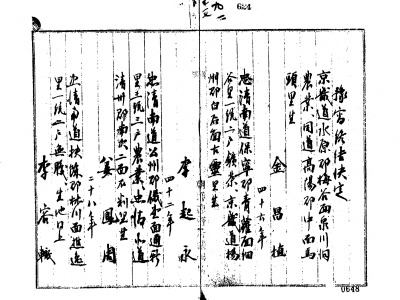 624
豫審終結決定
京畿道水原郡梅谷面泉川洞
農業 同道高陽郡中面馬
頭里生
金昌植
四十六年
忠清南道保寧郡青蘿面
谷里一統二戶 農業 京畿道楊
州郡白石面大靈里生
李起永
四十二年
忠清南道公州郡儀堂面通新
里三統二戶 農業 忠清北道
清州郡南次二面石判里生
姜鳳周
二十八年
忠清南道扶餘郡林川面
里一統一戶 無職 生地同上
李容轍
0648